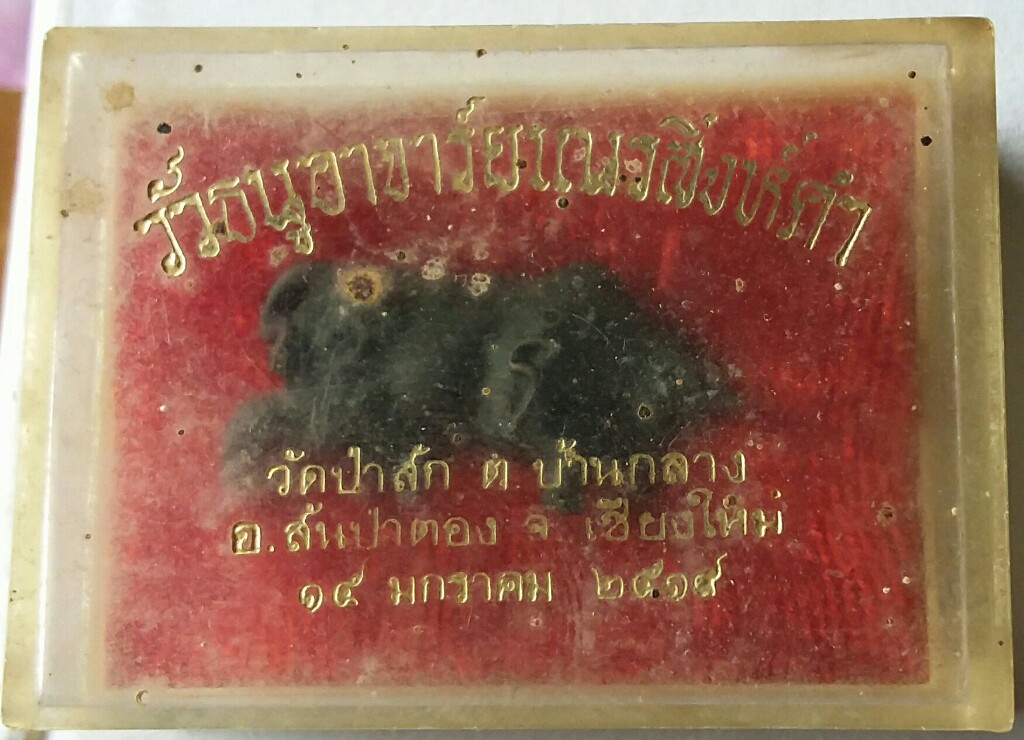 วัวธนูอาจาร์ยเณรสิงห์คำ
วัดป่าสัก ต บ้านกลาง
อ.สันป่าตอง จ. เชียงใหม่
๑๕ มกราคม ๒๕๑๙